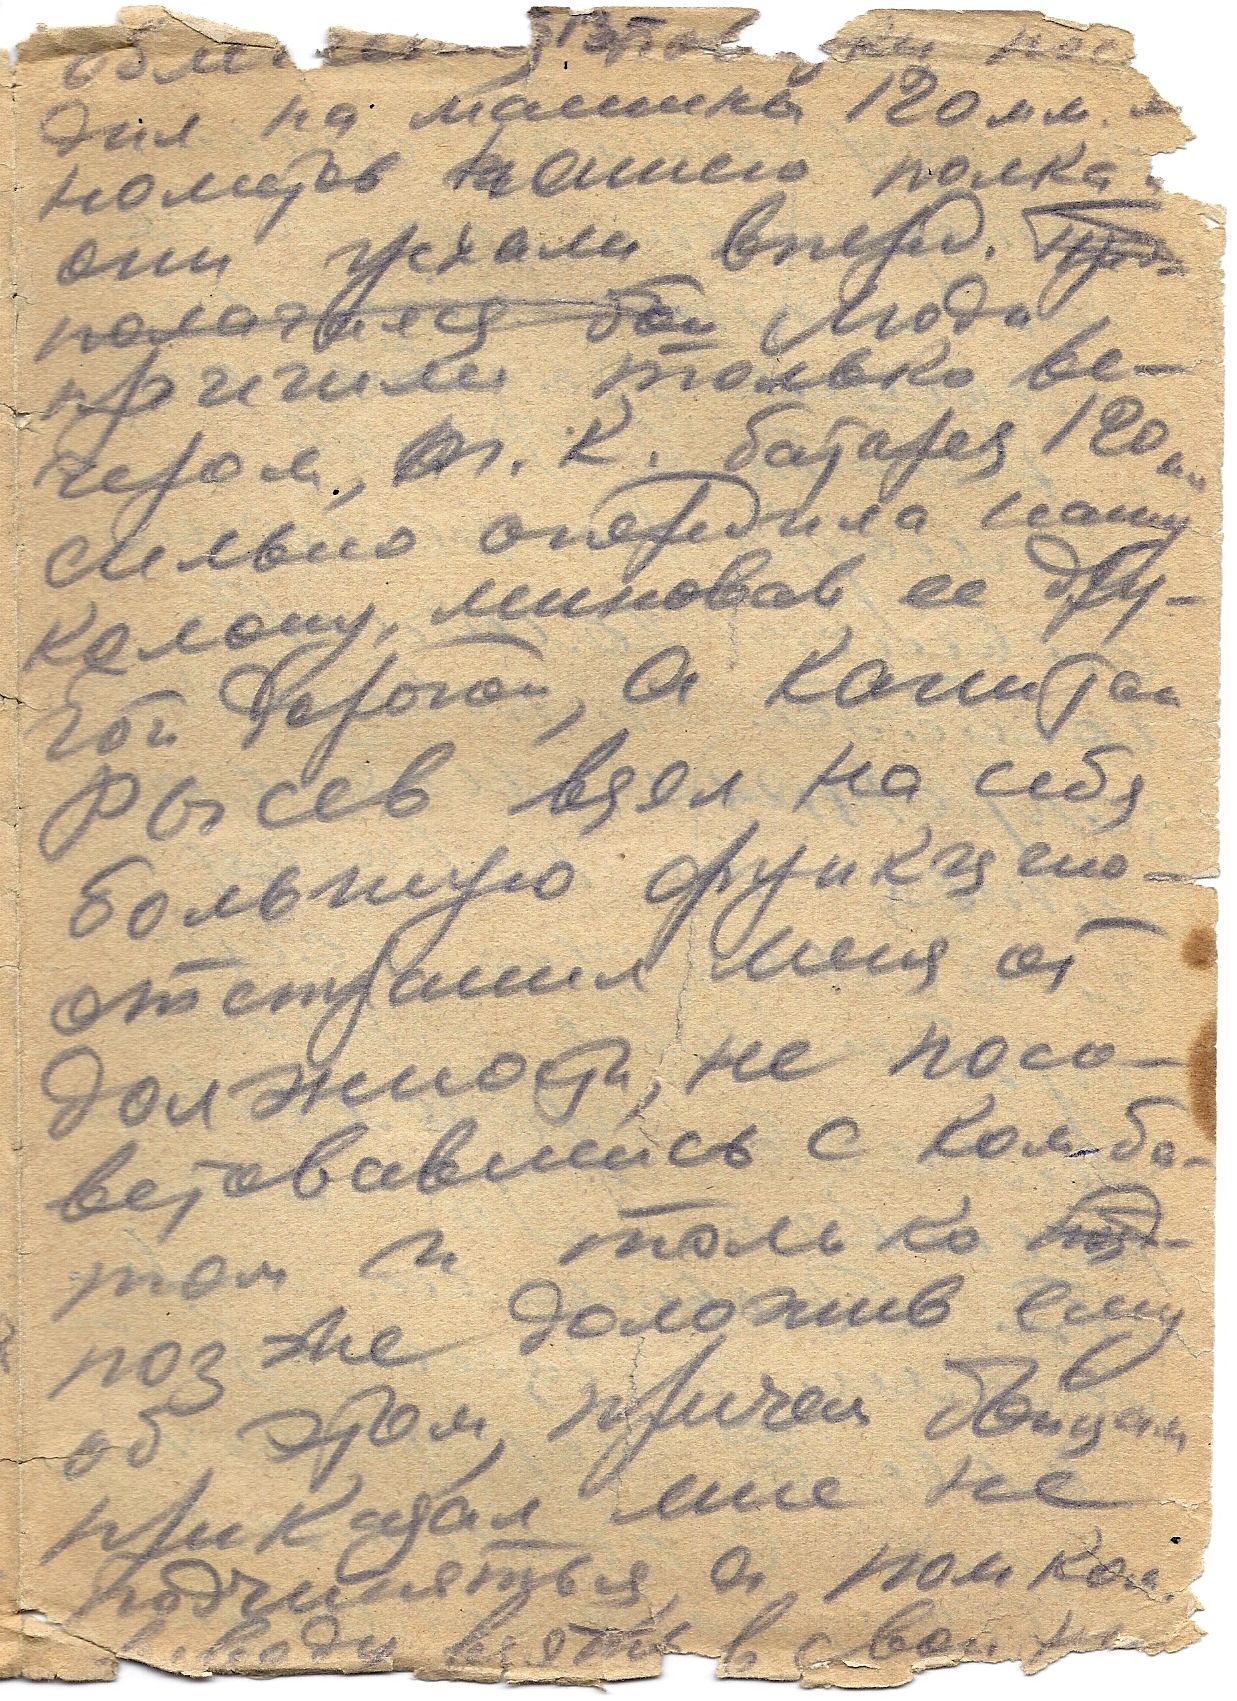 дил на машины 120 мм. м
нометов нашего полка и
они уехали вперед.
полагался бой Люди
причили только ве-
чером, т. к. батарея 120 мм
сильно опередила нашу
колону, миновав ее дру-
гой дорогой, а капитан
Рысев взял на себя
большую функцию -
отстранил меня от
должности, не посо-
ветовавшись с комба-
том и только
позже доложив ему
об этом, причем
приказал мне не
подчиняться, а помком.
взводу взять в свои